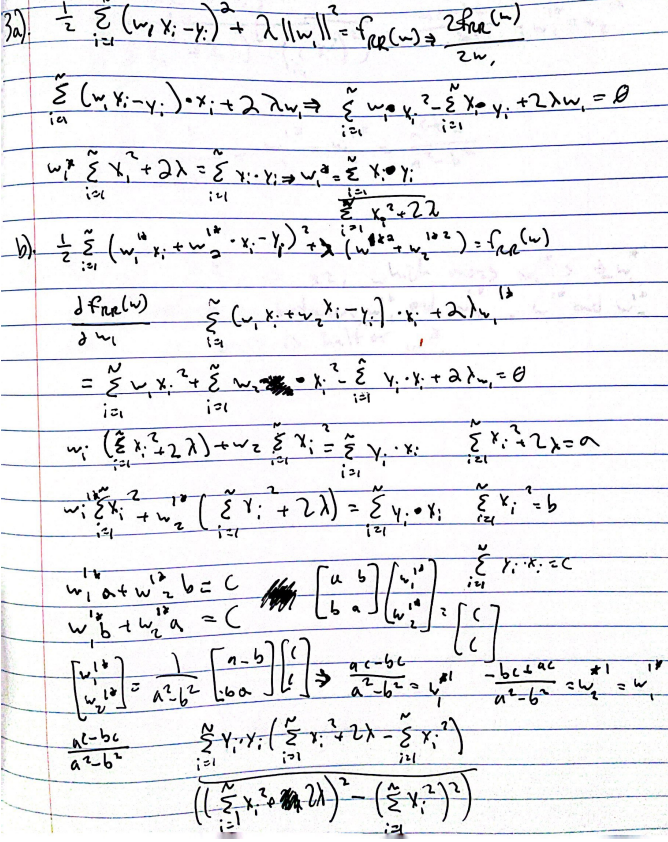 3a). 1/2 Σ_{i=1}^{N} (w₁ xᵢ - yᵢ)² + λ||w₁||² = f_RR(w) ⇒ 2f_RR(w) / 2w₁
Σ_{i=1}^{N} (w₁ xᵢ - yᵢ) • xᵢ + 2λw₁ ⇒ Σ_{i=1}^{N} w₁ • xᵢ² - Σ_{i=1}^{N} xᵢ • yᵢ + 2λw₁ = 0
w₁* Σ_{i=1}^{N} xᵢ² + 2λ = Σ_{i=1}^{N} yᵢ · xᵢ ⇒ w₁* = Σ_{i=1}^{N} xᵢ • yᵢ / Σ_{i=1}^{N} xᵢ² + 2λ
b). 1/2 Σ_{i=1}^{N} (w₁^{1*} xᵢ + w₂^{1*} · xᵢ - yᵢ)² + λ (w₁^{1*2} + w₂^{1*2}) = f_RR(w)
∂f_RR(w) / ∂w₁ Σ_{i=1}^{N} (w₁ xᵢ + w₂ xᵢ - yᵢ) · xᵢ + 2λw₁^{1*}
= Σ_{i=1}^{N} w₁ xᵢ² + Σ_{i=1}^{N} w₂ • xᵢ² - Σ_{i=1}^{N} yᵢ · xᵢ + 2λw₁ = 0
w₁ (Σ_{i=1}^{N} xᵢ² + 2λ) + w₂ Σ_{i=1}^{N} xᵢ² = Σ_{i=1}^{N} yᵢ · xᵢ Σ_{i=1}^{N} xᵢ² + 2λ = a
w₁^{1*} Σ_{i=1}^{N} xᵢ² + w₂^{1*} (Σ_{i=1}^{N} xᵢ² + 2λ) = Σ_{i=1}^{N} yᵢ • xᵢ Σ_{i=1}^{N} xᵢ² = b
Σ_{i=1}^{N} yᵢ · xᵢ = c
w₁^{1*} a + w₂^{1*} b = c [a b; b a] [w₁^{1*}; w₂^{1*}] = [c; c]
w₁^{1*} b + w₂^{1*} a = c
[w₁^{1*}; w₂^{1*}] = 1/(a²-b²) [a -b; -b a] [c; c] ⇒ (ac-bc)/(a²-b²) = w₁^{*1} (-bc+ac)/(a²-b²) = w₂^{*1} = w₁^{1*}
(ac-bc)/(a²-b²) Σ_{i=1}^{N} yᵢ · xᵢ (Σ_{i=1}^{N} xᵢ² + 2λ - Σ_{i=1}^{N} xᵢ²)
((Σ_{i=1}^{N} xᵢ² + 2λ)² - (Σ_{i=1}^{N} xᵢ²)²)